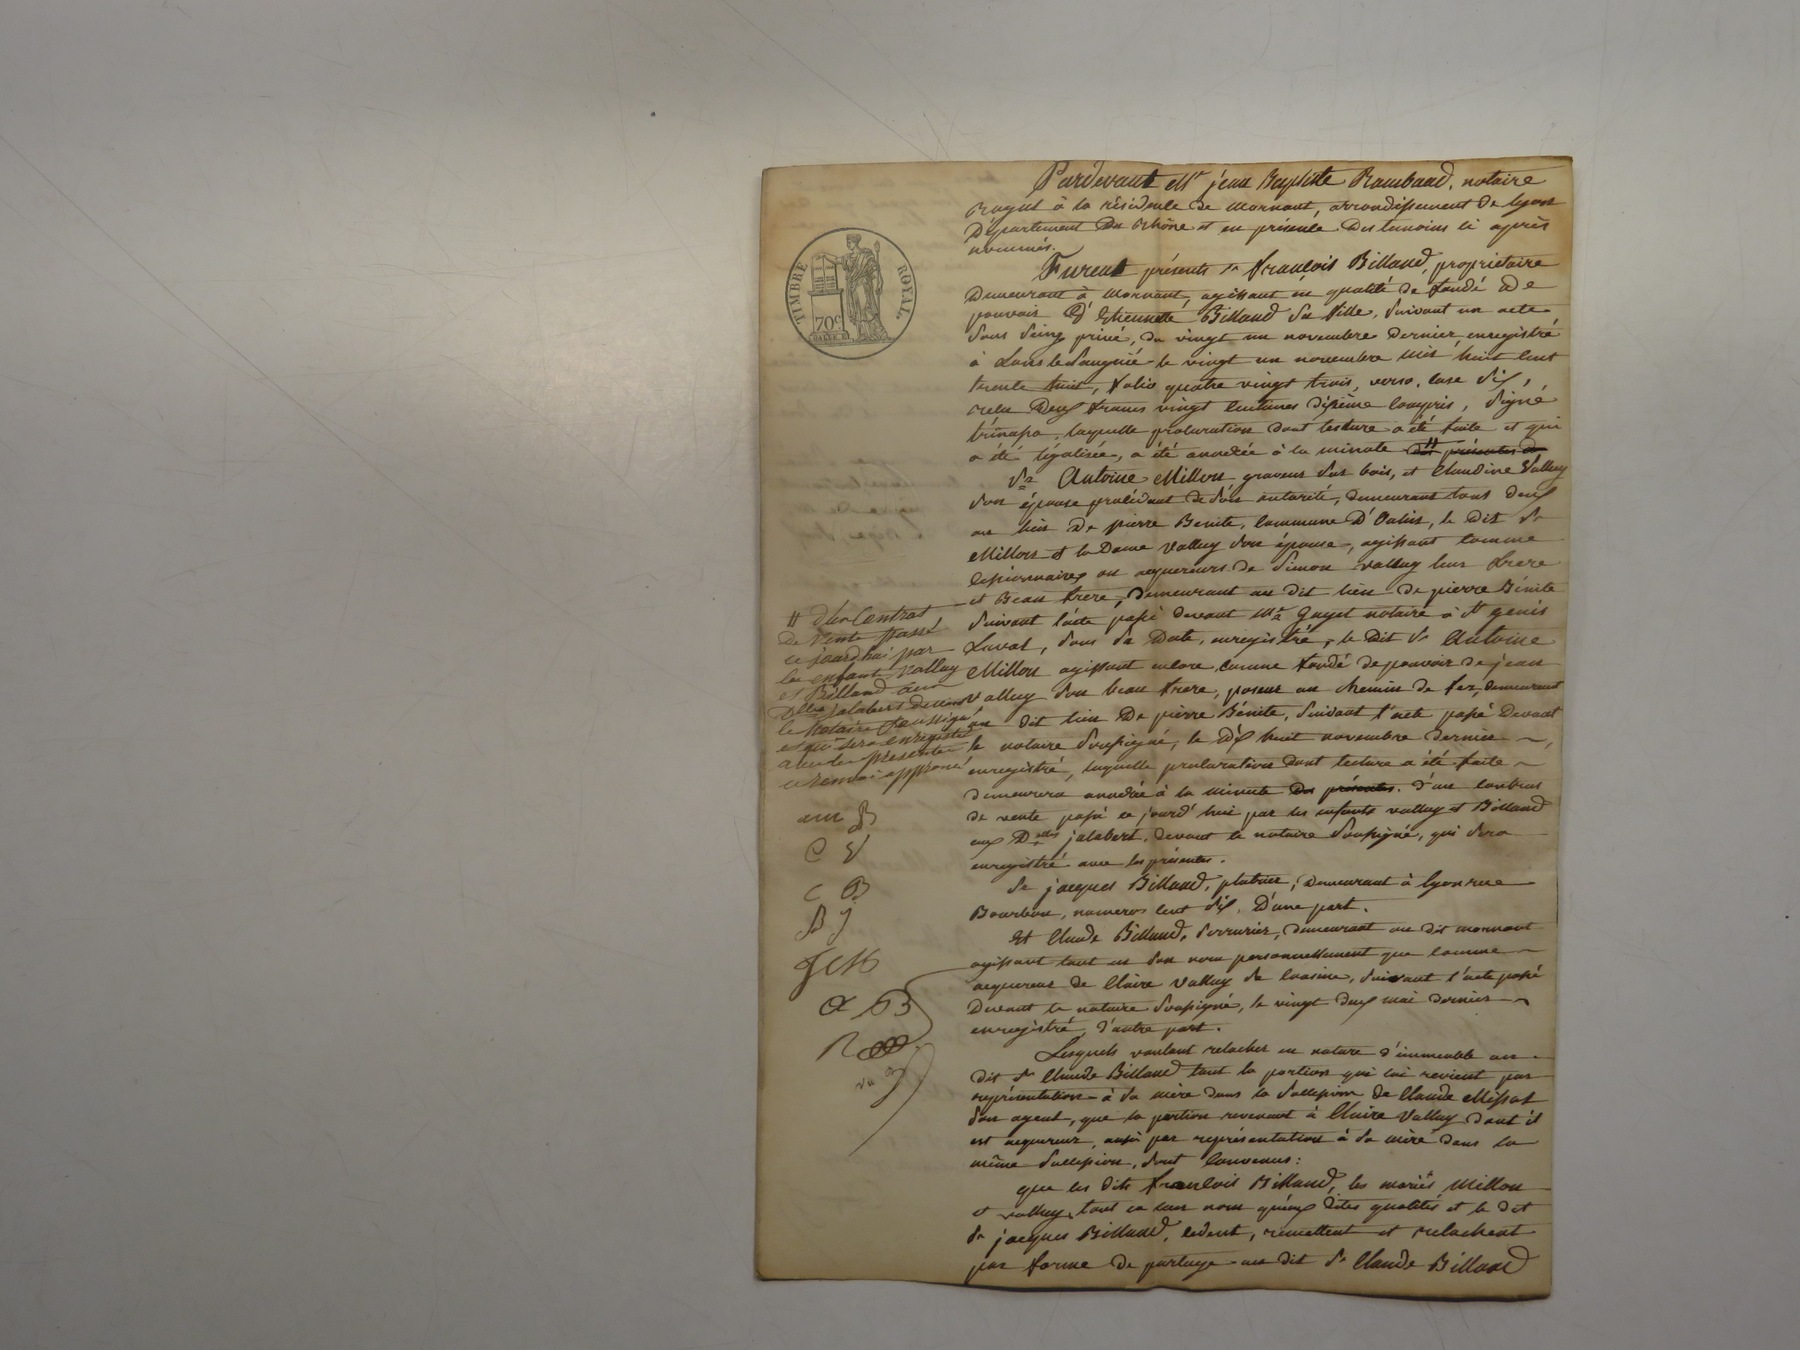 Pardevant Mr jean Baptiste Rambaud, notaire
Royal à la résidence de Mornant, arrondissement de Lyon
Département Du Rhône et en présence Des temoins ci après
nommés.
TIMBRE ROYAL
70c
Furent présents sr françois Billaud, propriétaire
Demeurant à Mornant, agissant en qualité de fondé de
pouvoir D'Etiennette Billaud sa fille, suivant un acte
sous seing privé, du vingt un novembre dernier, enregistré
à Lons le Saugnié le vingt un novembre mil huit cent
trente huit, folio quatre vingt trois, verso, case dix,
reçu Deux francs vingt centimes dixième compris, signé
laquelle procuration dont lecture a été faite et qui
a été légalisée, a été annexée à la minute # des présentes
sr Antoine Millon, graveur sur bois, et Claudine Valluy
son épouse procédant de son autorité, demeurant tous deux
au lieu De pierre Benite, commune D'Oulins, le dit sr
Millon et la Dame Valluy son épouse, agissant comme
cessionnaires ou acquereurs de Simon Valluy leur frere
et Beau frere, Demeurant au dit lieu de pierre Bénite
suivant l'acte passé devant Me Guyet notaire à St genis
Laval, sous sa Date, enregistré, le dit sr Antoine
Millon agissant encore comme fondé de pouvoir de jean
Valluy son beau frere, poseur au chemin de fer, demeurant
au dit lieu De pierre Bénite, suivant l'acte passé Devant
le notaire soussigné, le dix huit novembre dernier
enregistré, laquelle procuration dont lecture a été faite
demeurera annexée à la minute des présentes. d'un contrat
de vente passé ce jourd'hui par les enfants valluy et Billaud
aux Delles jalabert, devant le notaire soussigné, qui sera
enregistré avec les présentes.
# d'un Contrat
De Vente passé
ce jourd'hui par
les enfant valluy
et Billaud aux
Delles jalabert devant
le Notaire soussigné
et qui sera enregistré
avec les presentes
ce renvoi approuvé
C V
C B
B J
JCM
a B
Sr jacques Billaud, platrier, Demeurant à Lyon rue
Bourbon, numero cent dix, D'une part.
Et Claude Billaud, serrurier, demeurant au dit mornant
agissant tant en son nom personnellement que comme
acquereur de Claire Valluy sa cousine, suivant l'acte passé
Devant le notaire soussigné, le vingt deux mai dernier
enregistré, d'autre part.
Lesquels voulant relacher en nature d'immeuble au
dit sr Claude Billaud tant la portion qui lui revient par
représentation à sa mère dans la succession de Claude
son agent, que la portion revenant à Claire Valluy dont il
est acquereur, aussi par représentation à sa mère dans la
même succession, sont convenus:
que les dits françois Billaud, les mariés Millon
et valluy, tant en leur nom qu'aux dites qualités et le dit
sr jacques Billaud, cedent, remettent et relachent
par forme de partage au dit sr Claude Billaud